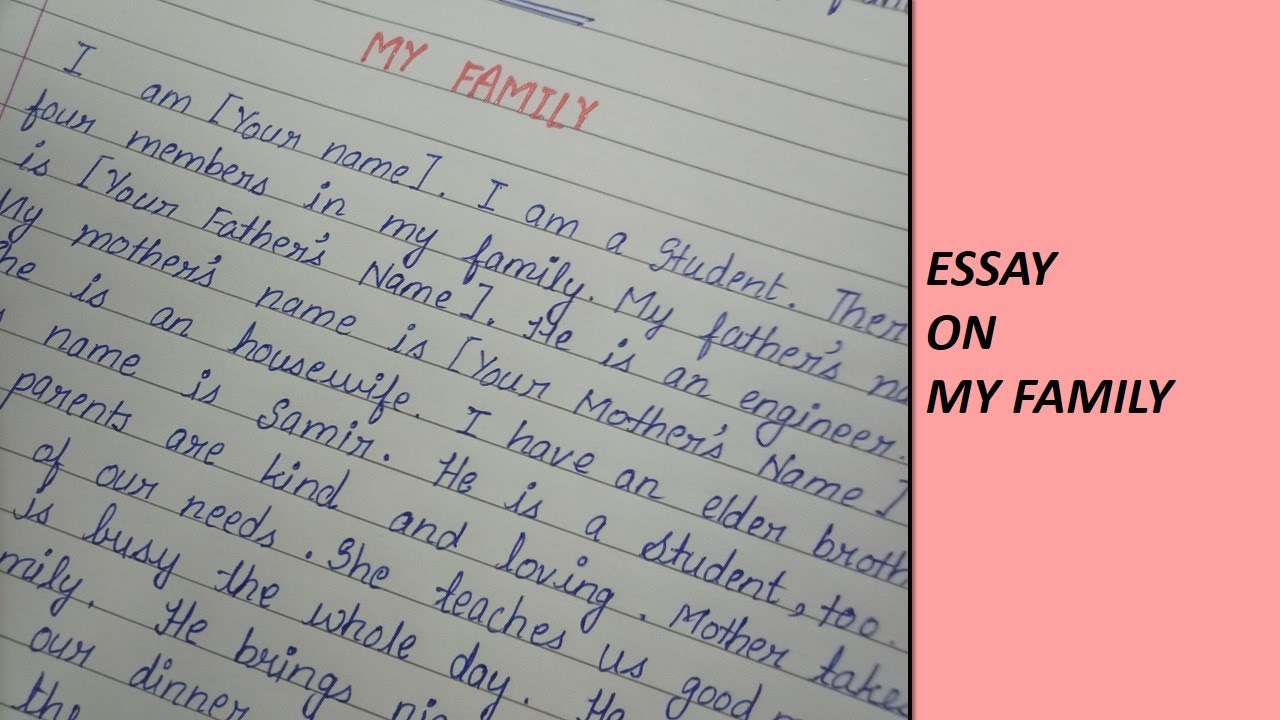 MY FAMILY
I am [Your name]. I am a Student. Ther
four members in my family. My father's na
is [Your Father's Name]. He is an engineer.
My mother's name is [Your Mother's Name]
he is an housewife. I have an elder broth
name is Samir. He is a student, too.
parents are kind and loving. Mother take
of our needs. She teaches us good
is busy the whole day. He
mily. He brings
our dinner
the
ESSAY
ON
MY FAMILY